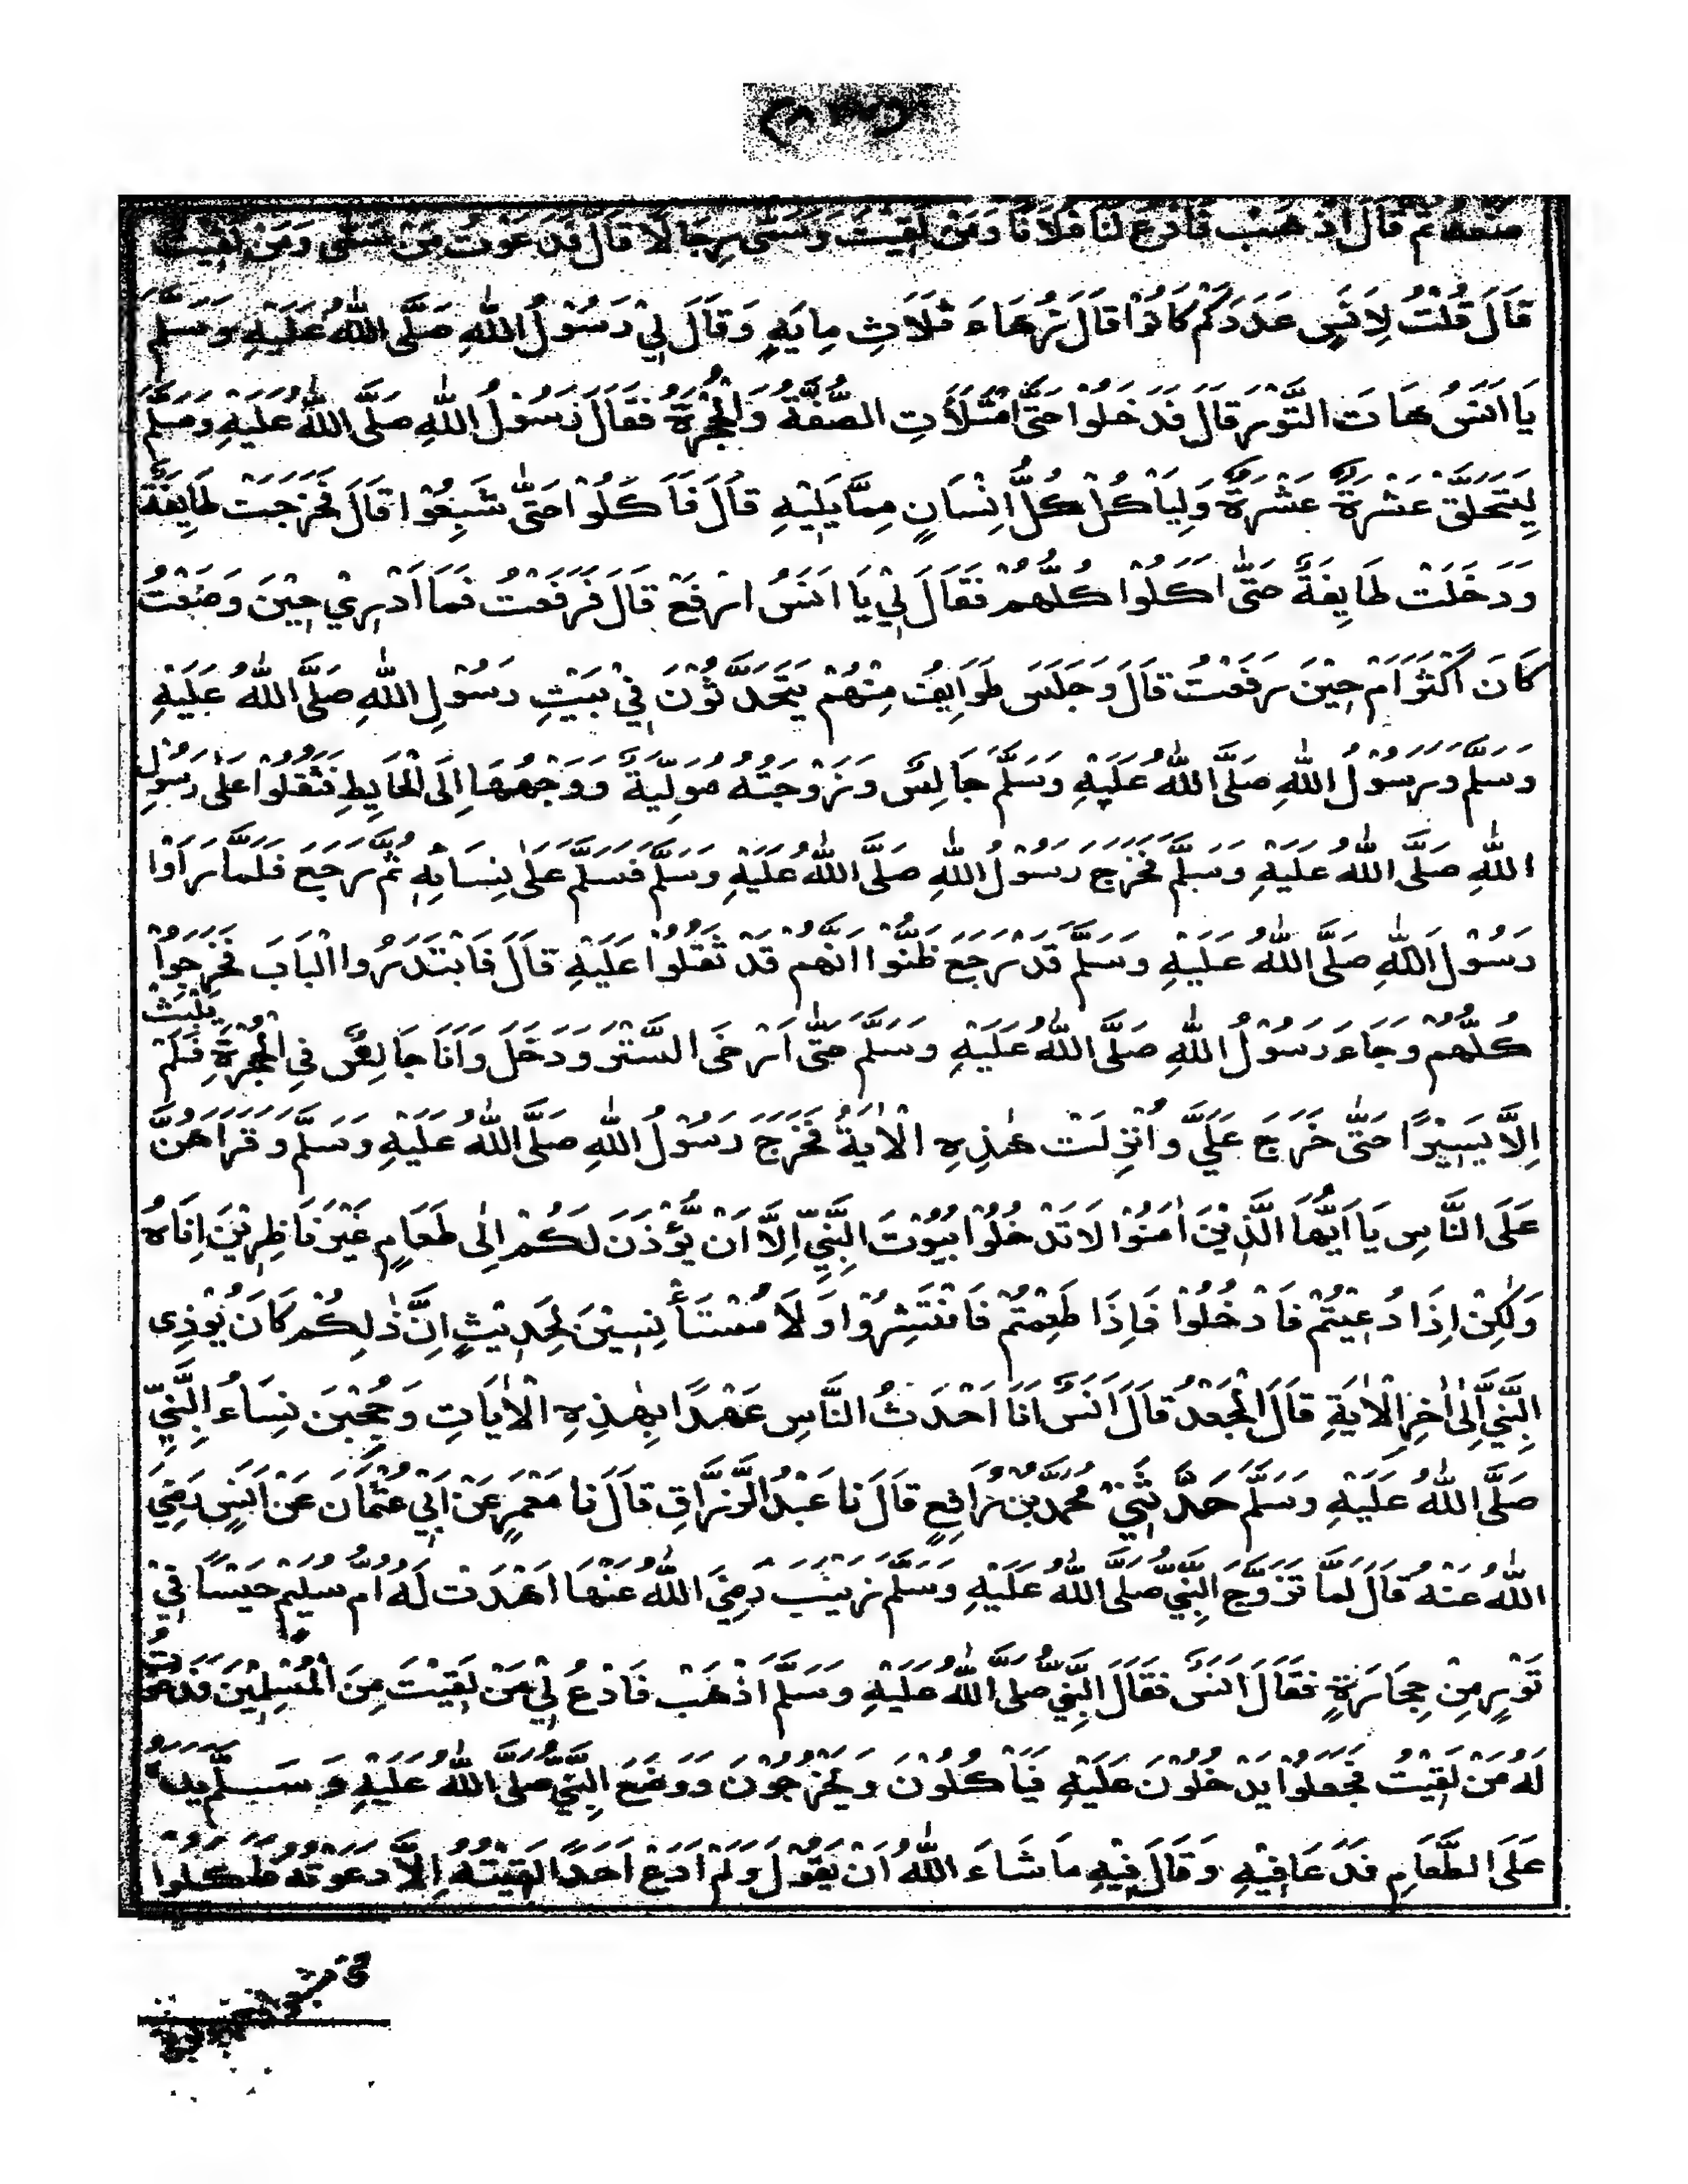 ضعه ثم قال اذهب فادع لنا فلانا ومن لقيت وسمى رجالا قال فدعوت من سمى ومن لقيت
قَالَ قُلْتُ لِاَنَسٍ عَدَدَكَمْ كَانُوْا قَالَ زُهَاءَ ثَلَاثِ مِايَةٍ وَقَالَ لِيْ رَسُوْلُ اللّٰهِ صَلَّى اللّٰهُ عَلَيْهِ وَسَلَّمَ
يَا اَنَسُ هَاتِ التَّوْرَ قَالَ فَدَخَلُوْا حَتَّى امْتَلَأَتِ الصُّفَّةُ وَالْحُجْرَةُ فَقَالَ رَسُوْلُ اللّٰهِ صَلَّى اللّٰهُ عَلَيْهِ وَسَلَّمَ
لِيَتَحَلَّقْ عَشَرَةٌ عَشَرَةٌ وَلِيَاْكُلْ كُلُّ اِنْسَانٍ مِمَّا يَلِيْهِ قَالَ فَاَكَلُوْا حَتّٰى شَبِعُوْا قَالَ فَخَرَجَتْ طَايِفَةٌ
وَدَخَلَتْ طَايِفَةٌ حَتّٰى اَكَلُوْا كُلُّهُمْ فَقَالَ لِيْ يَا اَنَسُ ارْفَعْ قَالَ فَرَفَعْتُ فَمَا اَدْرِيْ حِيْنَ وَضَعْتُ
كَانَ اَكْثَرَ اَمْ حِيْنَ رَفَعْتُ قَالَ وَجَلَسَ طَوَايِفُ مِنْهُمْ يَتَحَدَّثُوْنَ فِيْ بَيْتِ رَسُوْلِ اللّٰهِ صَلَّى اللّٰهُ عَلَيْهِ
وَسَلَّمَ وَرَسُوْلُ اللّٰهِ صَلَّى اللّٰهُ عَلَيْهِ وَسَلَّمَ جَالِسٌ وَزَوْجَتُهُ مُوَلِّيَةٌ وَجْهَهَا اِلَى الْحَايِطِ فَثَقُلُوْا عَلٰى رَسُوْلِ
اللّٰهِ صَلَّى اللّٰهُ عَلَيْهِ وَسَلَّمَ فَخَرَجَ رَسُوْلُ اللّٰهِ صَلَّى اللّٰهُ عَلَيْهِ وَسَلَّمَ فَسَلَّمَ عَلٰى نِسَائِهٖ ثُمَّ رَجَعَ فَلَمَّا رَاَوْا
رَسُوْلَ اللّٰهِ صَلَّى اللّٰهُ عَلَيْهِ وَسَلَّمَ قَدْ رَجَعَ ظَنُّوْا اَنَّهُمْ قَدْ ثَقُلُوْا عَلَيْهِ قَالَ فَابْتَدَرُوا الْبَابَ فَخَرَجُوْا
كُلُّهُمْ وَجَاءَ رَسُوْلُ اللّٰهِ صَلَّى اللّٰهُ عَلَيْهِ وَسَلَّمَ حَتّٰى اَرْخَى السِّتْرَ وَدَخَلَ وَاَنَا جَالِسٌ فِى الْحُجْرَةِ فَلَمْ يَلْبَثْ
اِلَّا يَسِيْرًا حَتّٰى خَرَجَ عَلَيَّ وَاُنْزِلَتْ هٰذِهِ الْاٰيَةُ فَخَرَجَ رَسُوْلُ اللّٰهِ صَلَّى اللّٰهُ عَلَيْهِ وَسَلَّمَ وَقَرَاَهُنَّ
عَلَى النَّاسِ يَا اَيُّهَا الَّذِيْنَ اٰمَنُوْا لَا تَدْخُلُوْا بُيُوْتَ النَّبِيِّ اِلَّا اَنْ يُّؤْذَنَ لَكُمْ اِلٰى طَعَامٍ غَيْرَ نَاظِرِيْنَ اِنَاهُ
وَلٰكِنْ اِذَا دُعِيْتُمْ فَادْخُلُوْا فَاِذَا طَعِمْتُمْ فَانْتَشِرُوْا وَلَا مُسْتَأْنِسِيْنَ لِحَدِيْثٍ اِنَّ ذٰلِكُمْ كَانَ يُؤْذِى
النَّبِيَّ اِلٰى اٰخِرِ الْاٰيَةِ قَالَ الْجَعْدُ قَالَ اَنَسٌ اَنَا اَحْدَثُ النَّاسِ عَهْدًا بِهٰذِهِ الْاٰيَاتِ وَحُجِبْنَ نِسَاءُ النَّبِيِّ
صَلَّى اللّٰهُ عَلَيْهِ وَسَلَّمَ حَدَّثَنِيْ مُحَمَّدُ بْنُ رَافِعٍ قَالَ نَا عَبْدُ الرَّزَّاقِ قَالَ نَا مَعْمَرٌ عَنْ اَبِيْ عُثْمَانَ عَنْ اَنَسٍ رَضِيَ
اللّٰهُ عَنْهُ قَالَ لَمَّا تَزَوَّجَ النَّبِيُّ صَلَّى اللّٰهُ عَلَيْهِ وَسَلَّمَ زَيْنَبَ رَضِيَ اللّٰهُ عَنْهَا اَهْدَتْ لَهُ اُمُّ سُلَيْمٍ حَيْسًا فِيْ
تَوْرٍ مِنْ حِجَارَةٍ فَقَالَ اَنَسٌ فَقَالَ النَّبِيُّ صَلَّى اللّٰهُ عَلَيْهِ وَسَلَّمَ اذْهَبْ فَادْعُ لِيْ مَنْ لَقِيْتَ مِنَ الْمُسْلِمِيْنَ فَدَعَوْتُ
لَهُ مَنْ لَقِيْتُ فَجَعَلُوْا يَدْخُلُوْنَ عَلَيْهِ فَيَاْكُلُوْنَ وَيَخْرُجُوْنَ وَوَضَعَ النَّبِيُّ صَلَّى اللّٰهُ عَلَيْهِ وَسَلَّمَ يَدَهُ
عَلَى الطَّعَامِ فَدَعَا فِيْهِ وَقَالَ فِيْهِ مَا شَاءَ اللّٰهُ اَنْ يَقُوْلَ وَلَمْ اَدَعْ اَحَدًا لَقِيْتُهُ اِلَّا دَعَوْتُهُ فَاَكَلُوْا